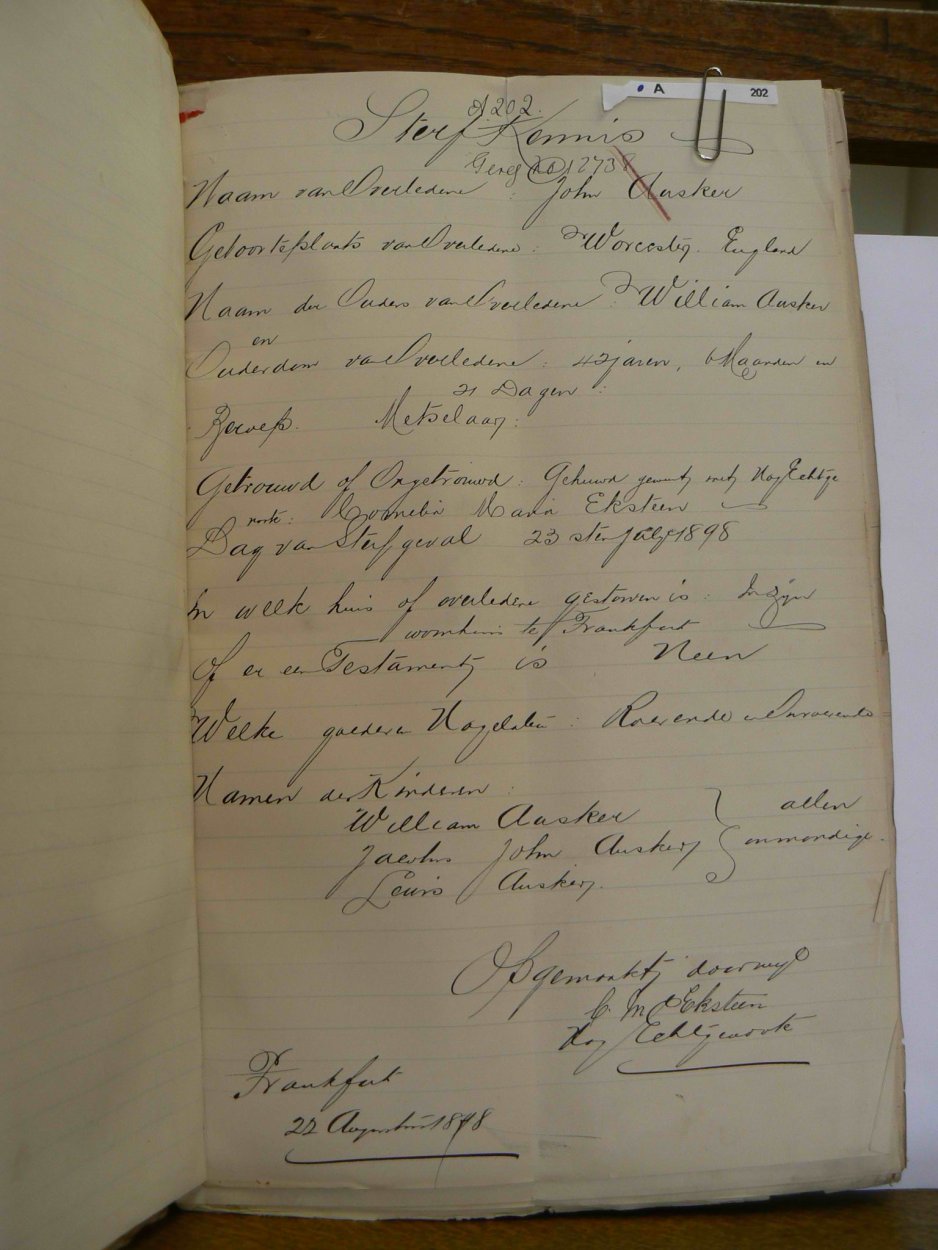 A 202
A202.
Sterf Kennis
Gereg No 1273
Naam van Overledene : John Ausker
Geboorteplaats van Overledene : Worcester. England
Naam der Ouders van Overledene : William Ausker
en
Ouderdom van Overledene : 42 jaren, 6 Maanden en
21 Dagen :
Beroep. Metselaar :
Getrouwd of Ongetrouwd : Gehuwd geweest met Nag Echtge
noote : Cornelia Maria Eksteen
Dag van Sterfgeval 23 sten July 1898
In welk huis of overledene gestorven is : In zijn
woonhuis te Frankfort
Of er een Testament is Neen
Welke goederen Nagelaten : Roerende en Onroerende
Namen der Kinderen :
William Ausker
Jacobus John Ausker allen onmondige.
Lewis Ausker.
Opgemaakt door mij
C. M. Eksteen
Nag Echtgenoote
Frankfort
22 Augustus 1898